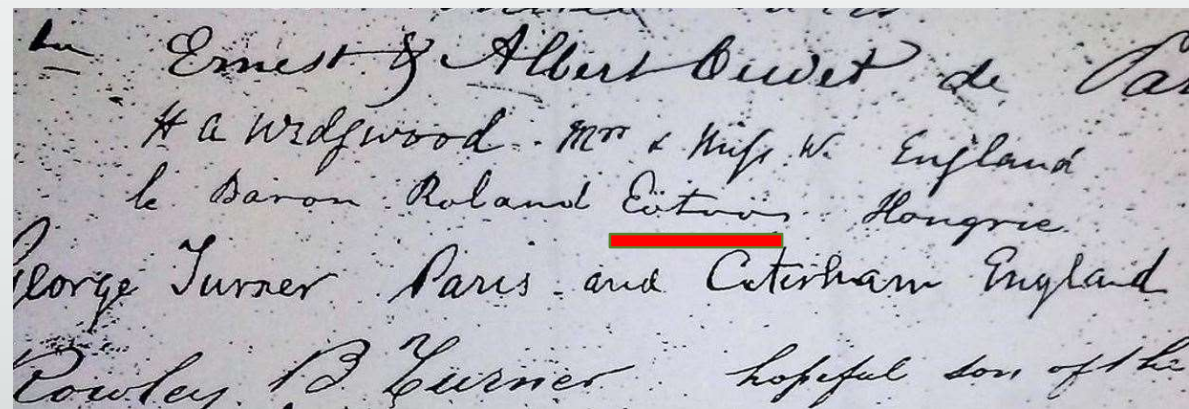 Ernest & Albert Ouvet de
H A Wedgwood. Mrs & Miss W. England
le Baron Roland Eötvös Hongrie
George Turner Paris and Caterham England
Rowley B. Turner hopeful son of the